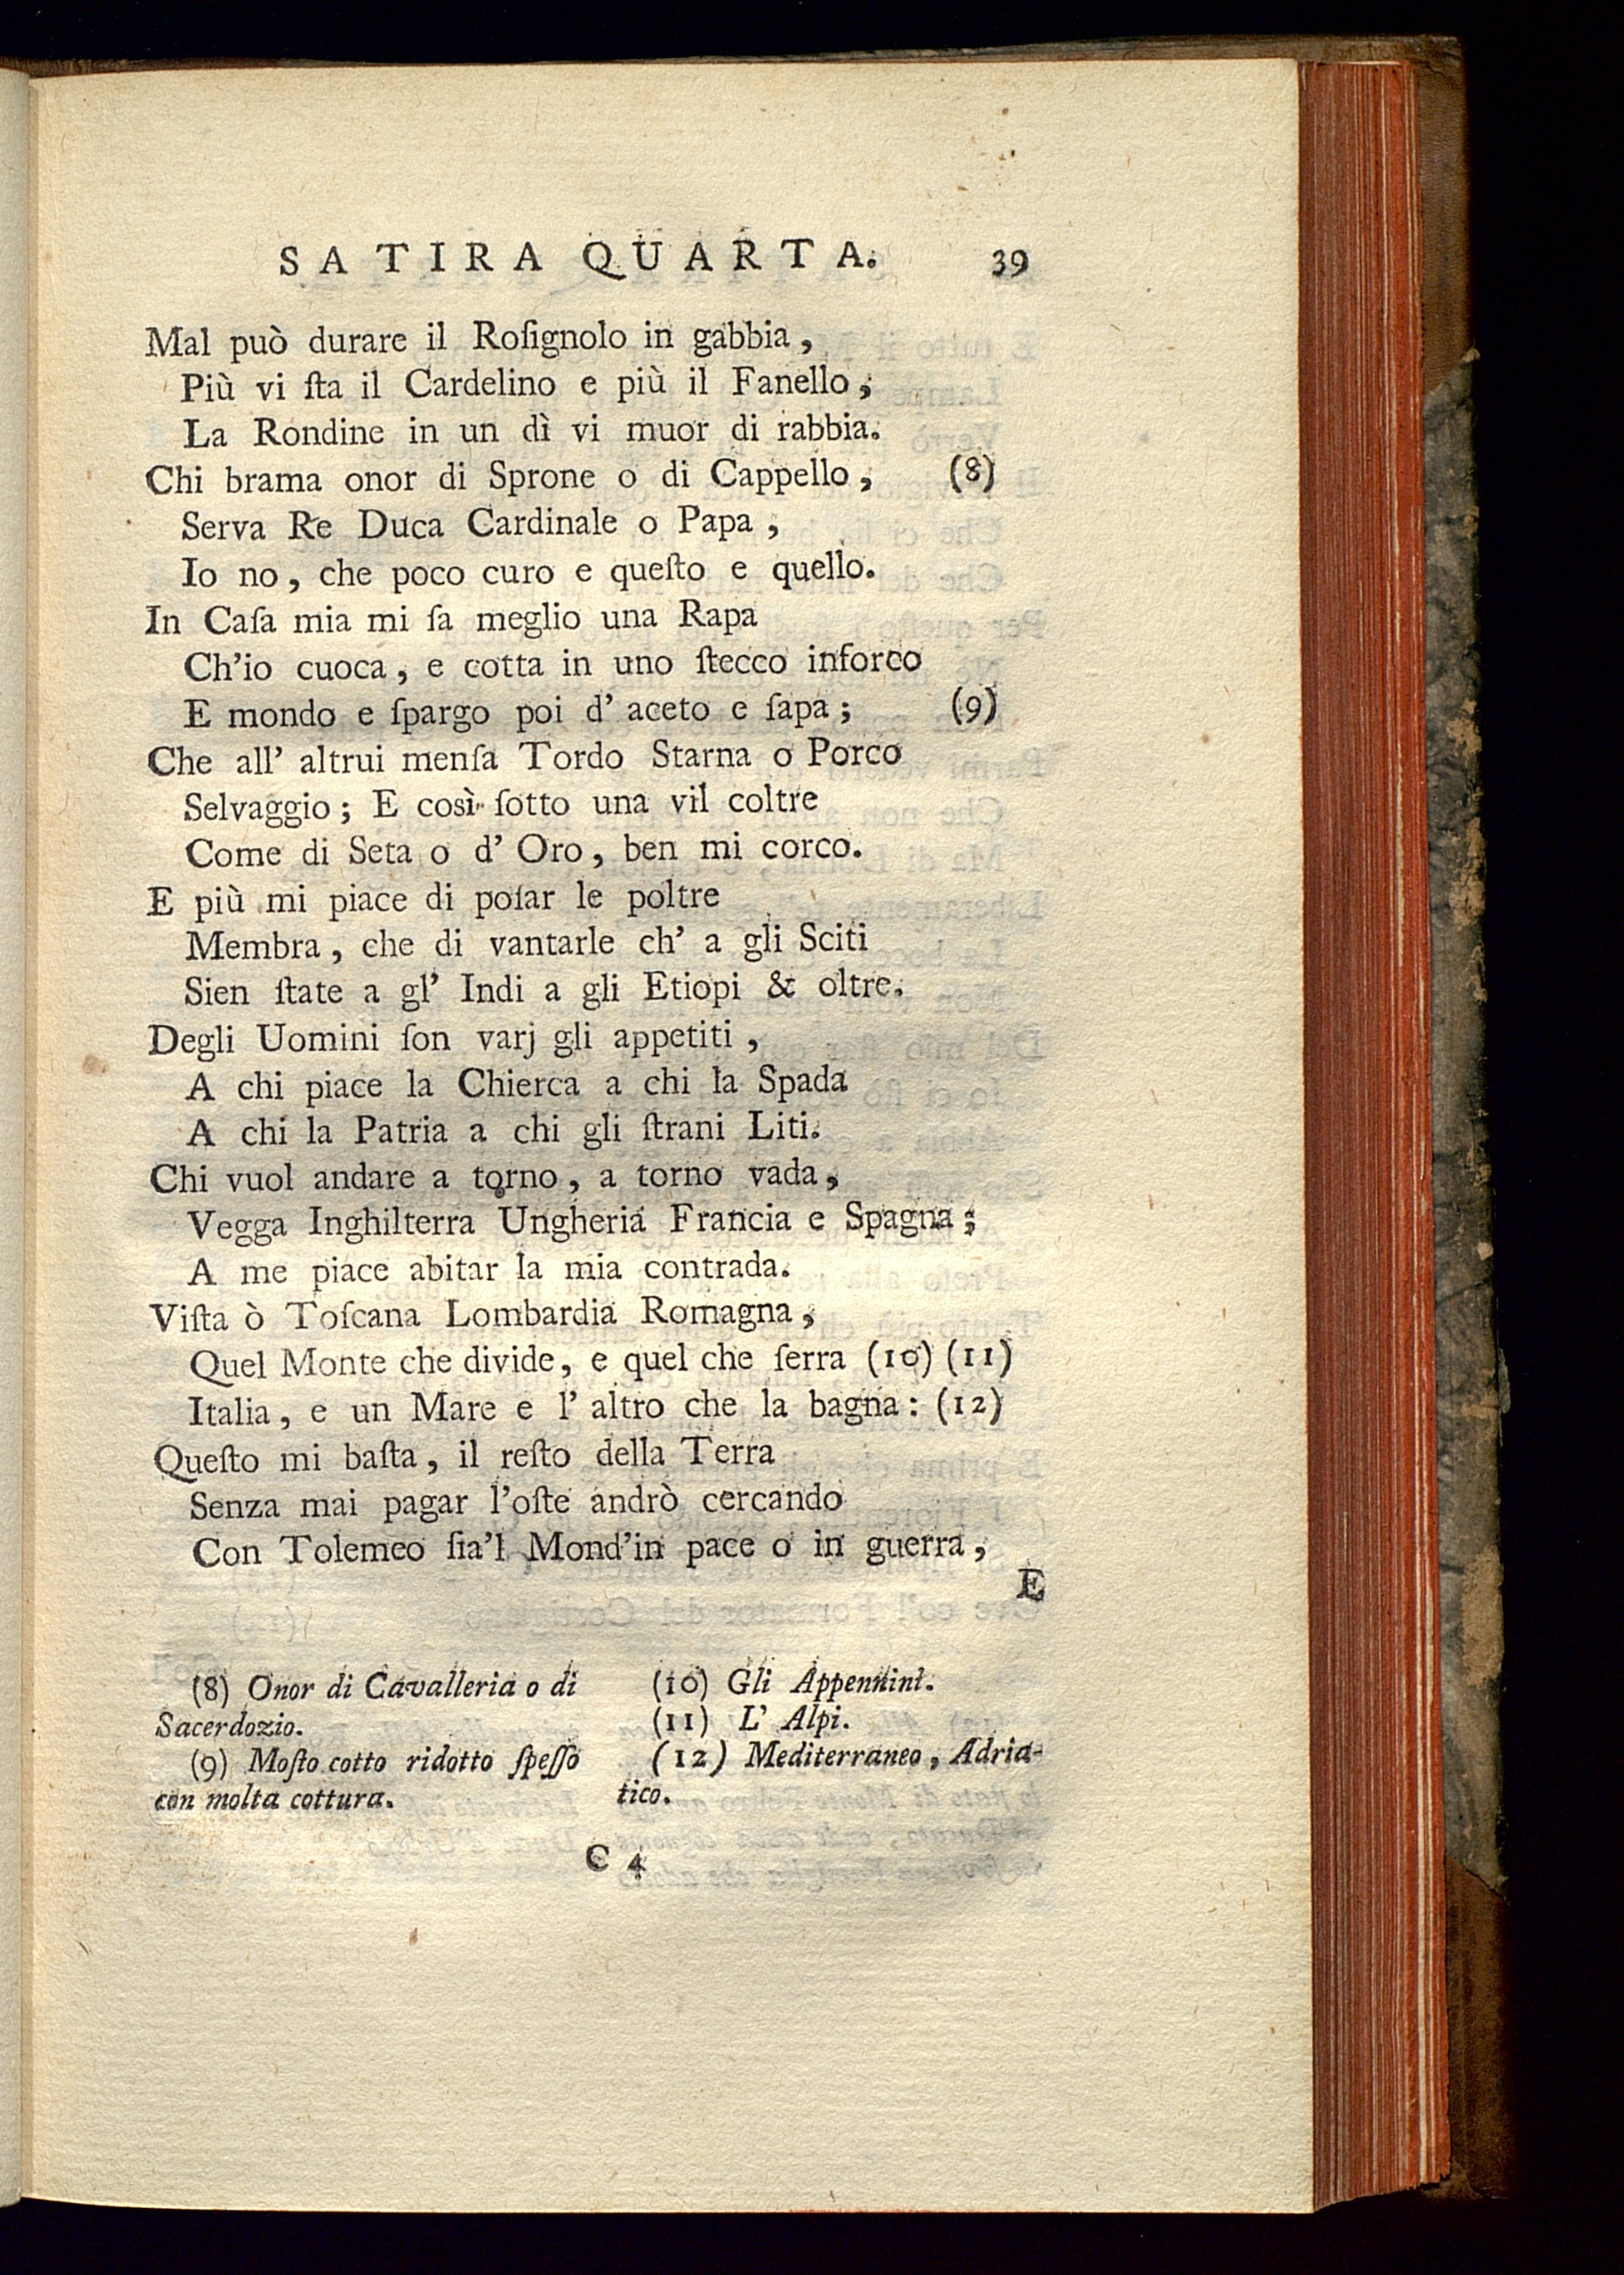 SATIRA QUARTA. 39
Mal può durare il Roſignolo in gabbia,
Più vi ſta il Cardelino e più il Fanello,
La Rondine in un dì vi muor di rabbia.
Chi brama onor di Sprone o di Cappello, (8)
Serva Re Duca Cardinale o Papa,
Io no, che poco curo e queſto e quello.
In Caſa mia mi ſa meglio una Rapa
Ch'io cuoca, e cotta in uno ſtecco inforco
E mondo e ſpargo poi d' aceto e ſapa; (9)
Che all' altrui menſa Tordo Starna o Porco
Selvaggio; E così ſotto una vil coltre
Come di Seta o d' Oro, ben mi corco.
E più mi piace di poſar le poltre
Membra, che di vantarle ch' a gli Sciti
Sien ſtate a gl' Indi a gli Etiopi & oltre.
Degli Uomini ſon varj gli appetiti,
A chi piace la Chierca a chi la Spada
A chi la Patria a chi gli ſtrani Liti.
Chi vuol andare a torno, a torno vada,
Vegga Inghilterra Ungheria Francia e Spagna;
A me piace abitar la mia contrada.
Viſta ò Toſcana Lombardia Romagna,
Quel Monte che divide, e quel che ſerra (10) (11)
Italia, e un Mare e l' altro che la bagna: (12)
Queſto mi baſta, il reſto della Terra
Senza mai pagar l'oſte andrò cercando
Con Tolemeo ſia'l Mond'in pace o in guerra,
E
(8) Onor di Cavalleria o di
Sacerdozio.
(9) Moſto cotto ridotto ſpeſſo
con molta cottura.
(10) Gli Appennini.
(11) L' Alpi.
(12) Mediterraneo, Adria-
tico.
C 4